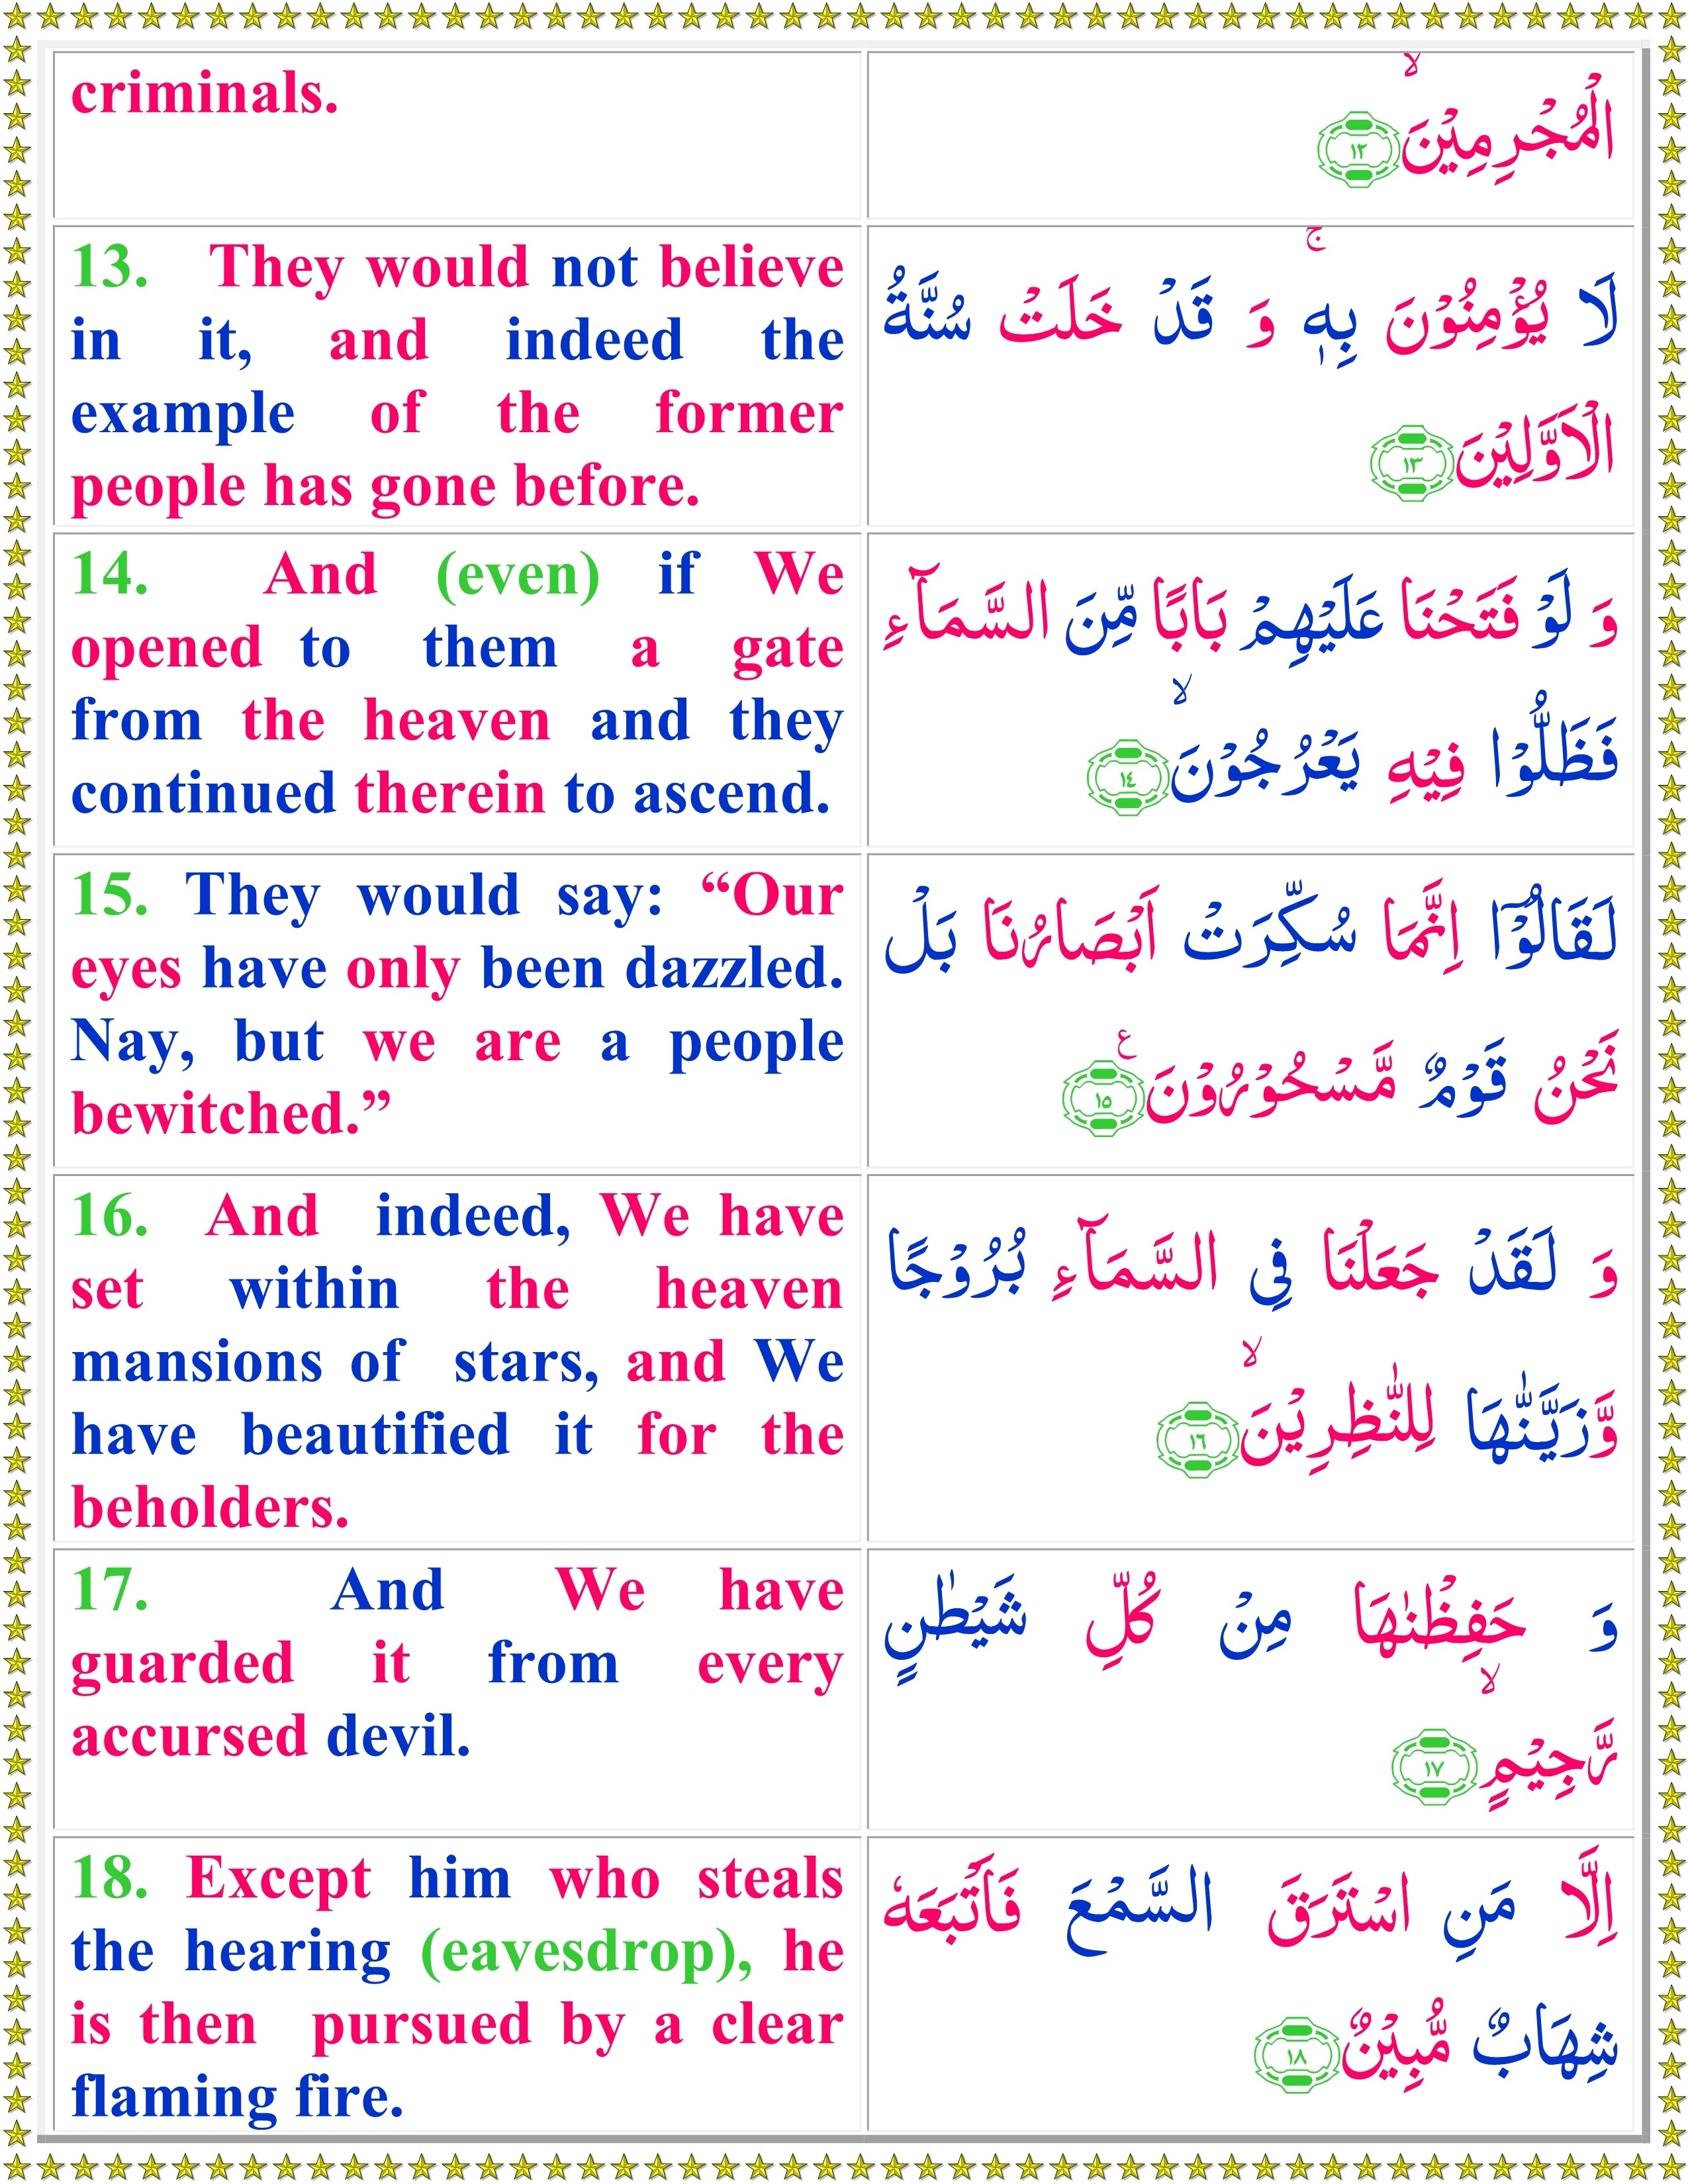 criminals.
الْمُجْرِمِيْنَۙ ١٢
13. They would not believe
in it, and indeed the
example of the former
people has gone before.
لَا يُؤْمِنُوْنَ بِهٖۚ وَ قَدْ خَلَتْ سُنَّةُ
الْاَوَّلِيْنَ ١٣
14. And (even) if We
opened to them a gate
from the heaven and they
continued therein to ascend.
وَ لَوْ فَتَحْنَا عَلَيْهِمْ بَابًا مِّنَ السَّمَآءِ
فَظَلُّوْا فِيْهِ يَعْرُجُوْنَۙ ١٤
15. They would say: “Our
eyes have only been dazzled.
Nay, but we are a people
bewitched.”
لَقَالُوْۤا اِنَّمَا سُكِّرَتْ اَبْصَارُنَا بَلْ
نَحْنُ قَوْمٌ مَّسْحُوْرُوْنَ ع ١٥
16. And indeed, We have
set within the heaven
mansions of stars, and We
have beautified it for the
beholders.
وَ لَقَدْ جَعَلْنَا فِى السَّمَآءِ بُرُوْجًا
وَّزَيَّنّٰهَا لِلنّٰظِرِيْنَۙ ١٦
17. And We have
guarded it from every
accursed devil.
وَ حَفِظْنٰهَا مِنْ كُلِّ شَيْطٰنٍ
رَّجِيْمٍۙ ١٧
18. Except him who steals
the hearing (eavesdrop), he
is then pursued by a clear
flaming fire.
اِلَّا مَنِ اسْتَرَقَ السَّمْعَ فَاَتْبَعَهٗ
شِهَابٌ مُّبِيْنٌ ١٨